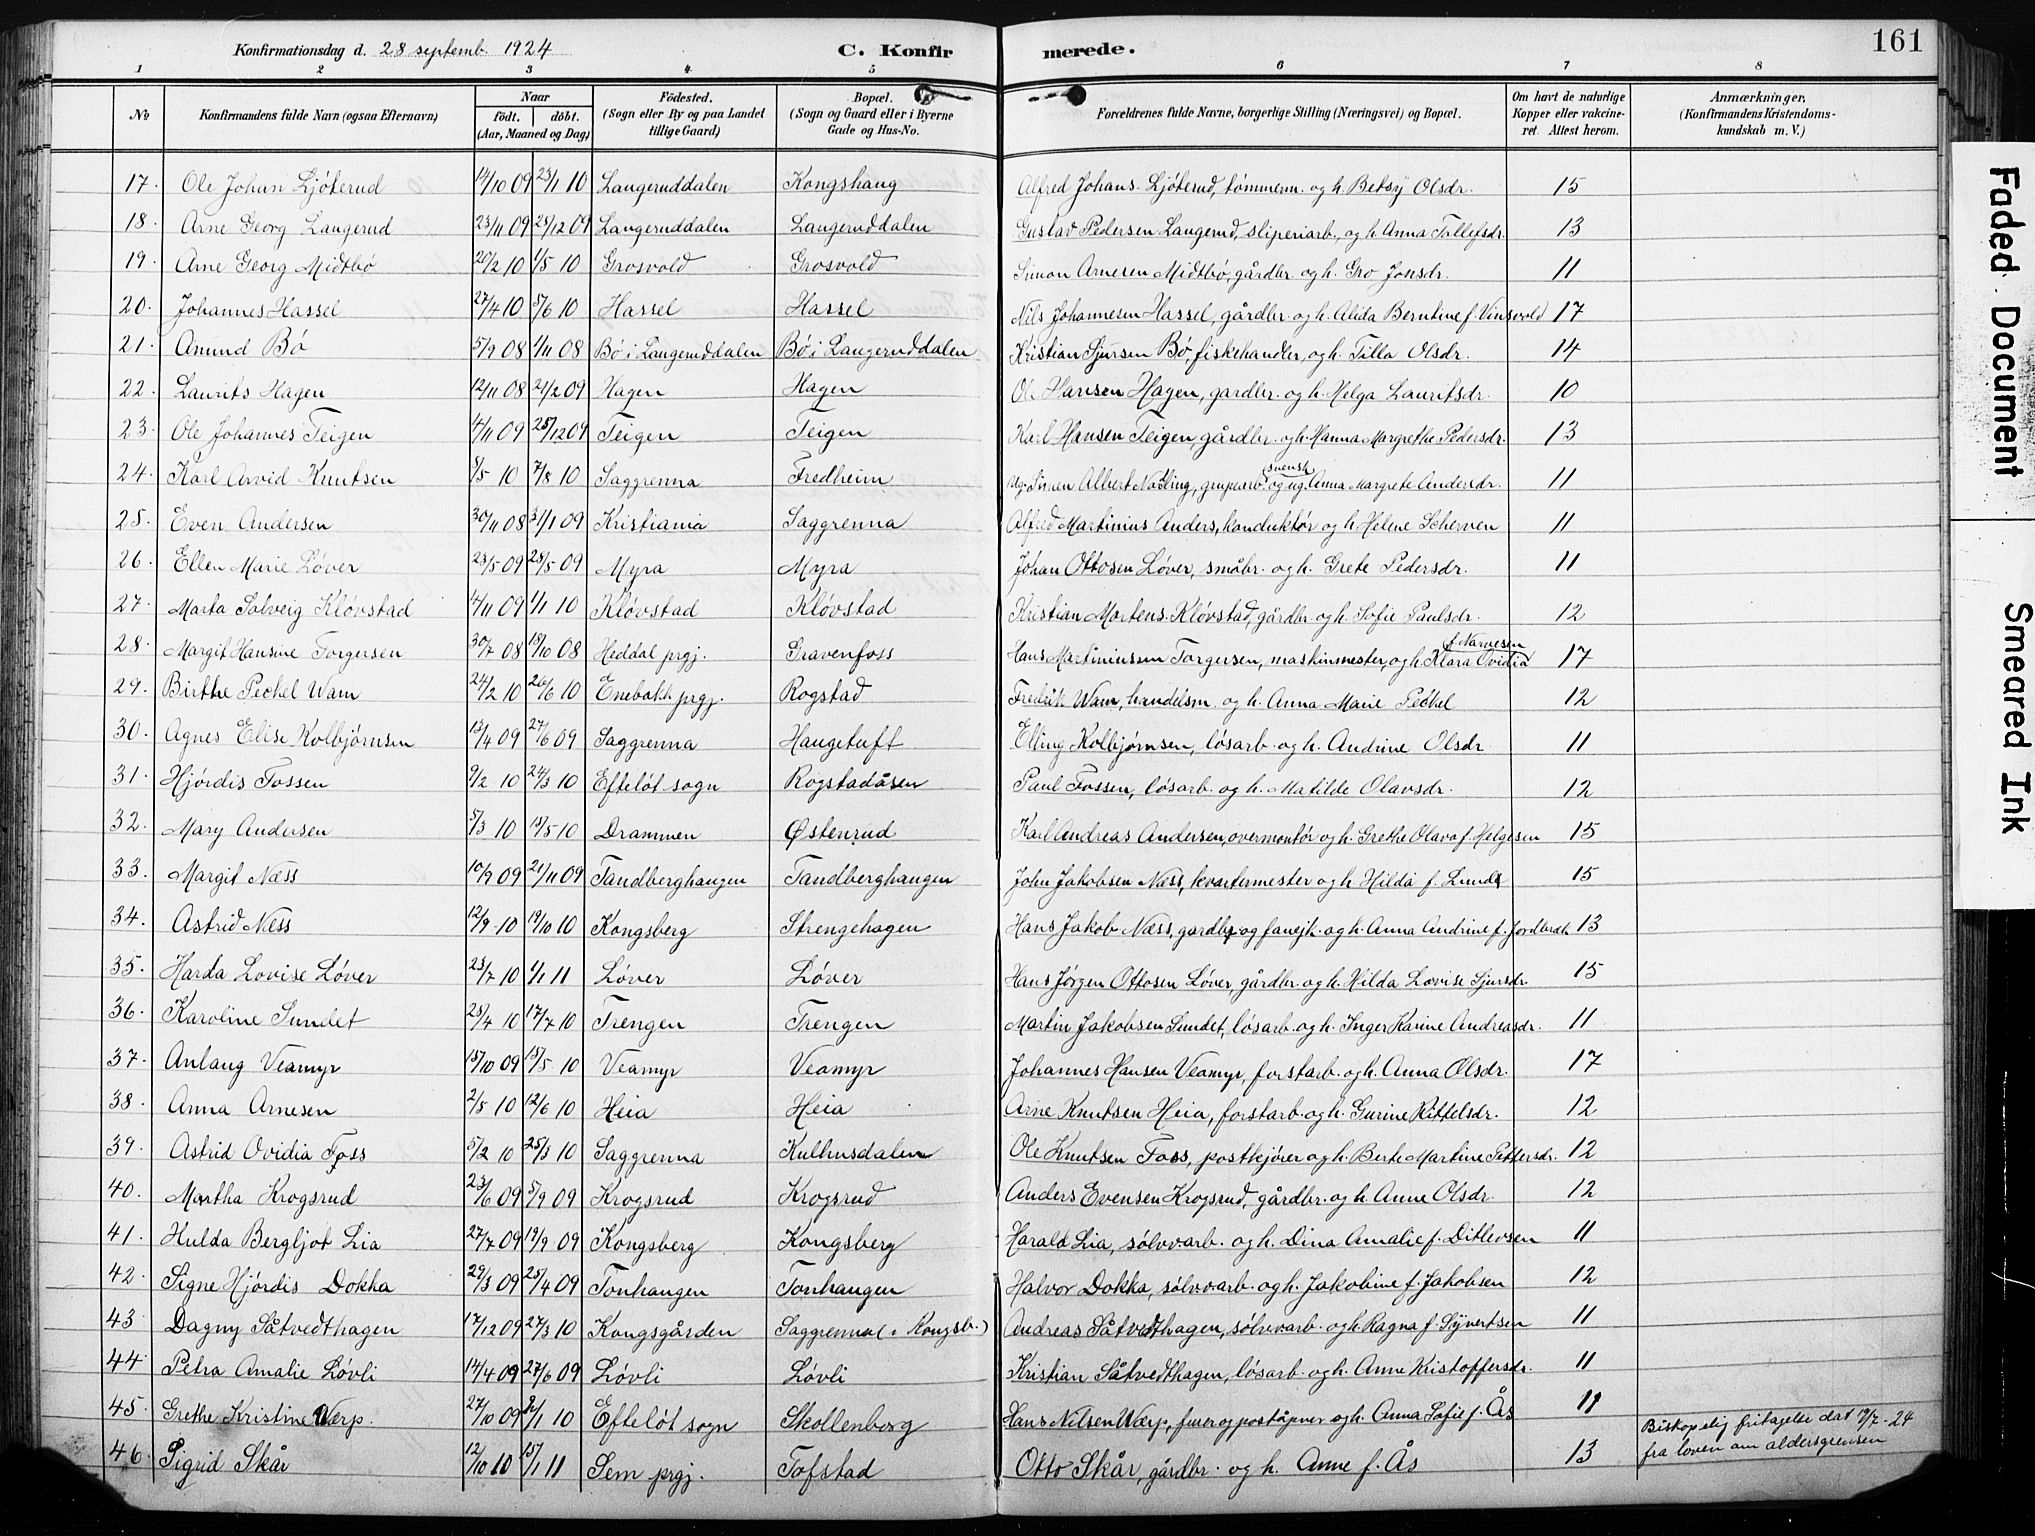 161
Konfirmationsdag d. 28 septemb. 1924 C. Konfirmerede.
1 2 3 4 5 6 7 8
No Konfirmandens fulde Navn (ogsaa Efternavn) Naar født. døbt. (Aar, Maaned og Dag) Fødested. (Sogn eller By og paa Landet tillige Gaard) Bopæl. (Sogn og Gaard eller i Byerne Gade og Hus-No. Forældrenes fulde Navne, borgerlige Stilling (Næringsvei) og Bopæl. Om havt de naturlige Kopper eller vakcineret. Attest herom. Anmærkninger. (Konfirmandens Kristendomskundskab m. V.)
17. Ole Johan Ljøterud 14/10 09 23/1 10 Langeruddalen Kongshaug Alfred Johans. Ljøterud, tømmerm. og h. Betsy Olsdr. 15
18. Arne Georg Langerud 23/11 09 25/12 09 Langeruddalen Langeruddalen Gustav Pedersen Langerud, sliperiarb., og h. Anna Tollefsdr. 13
19. Arne Georg Midtbø 20/2 10 1/5 10 Grosvold Grosvold Simon Arnesen Midtbø, gårdbr. og h. Gro Jonsdr. 11
20. Johannes Hassel 27/4 10 5/6 10 Hassel Hassel Nils Johannesen Hassel, gårdbr. og h. Alida Berntine f. Vinsvold 17
21. Anund Bø 5/9 08 1/11 08 Bø i Langeruddalen Bø i Langeruddalen Kristian Sjursen Bø, fiskehandler, og h. Tilla Olsdr. 14
22. Laurits Hagen 12/11 08 21/2 09 Hagen Hagen Ole Hansen Hagen, gardbr. og h. Helga Lauritsdr. 10
23. Ole Johannes Teigen 4/11 09 25/12 09 Teigen Teigen Karl Hansen Teigen, gårdbr. og h. Hanna Margrethe Pedersdr. 13
24. Karl Arvid Knutsen 8/5 10 7/8 10 Saggrenna Fredheim Albert svensk og ug. Anna Margrete Andersdr. 11
25. Even Andersen 30/11 08 31/1 09 Kristiania Saggrenna Alfred Martinius Anders., konduktør og h. Helene Scherven 11
26. Ellen Marie Løver 23/5 09 28/5 09 Myra Myra Johan Ottosen Løver, småbr. og h. Grete Pedersdr. 11
27. Marta Solveig Kløvstad 4/11 09 1/1 10 Kløvstad Kløvstad Kristian Martens. Kløvstad, gårdbr. og h. Sofie Paulsdr. 12
28. Margit Hansine Torgersen 30/7 08 18/10 08 Heddal prgj. Gravenfoss Hans Martiniussen Torgersen, maskinmester, og h. Klara Ovidia f. Narvesen 17
29. Birthe Peckel Wam 24/2 10 26/6 10 Enebakk prgj. Rogstad Fredrik Wam, handelsm. og h. Anna Marie Peckel 12
30. Agnes Elise Kolbjørnsen 13/4 09 27/6 09 Saggrenna Haugetuft Elling Kolbjørnsen, løsarb. og h. Andrine Olsdr. 11
31. Hjørdis Fossen 9/2 10 24/3 10 Efteløt sogn Rogstadåsen Paul Fossen, løsarb. og h. Matilde Olavsdr. 12
32. Mary Andersen 5/3 10 15/5 10 Drammen Østenrud Karl Andreas Andersen, overmontør og h. Grethe Olava f. Helgesen 15
33. Margit Næss 10/9 09 21/11 09 Tandberghaugen Tandberghaugen John Jakobsen Næss, kvartermester og h. Hilda f. Lund 15
34. Astrid Næss 12/9 10 19/10 10 Kongsberg Strengehagen Hans Jakob Næss, gardbr. og fanejk. og h. Anna Andrine f. Jordbræk 13
35. Harda Lovise Løver 23/7 10 1/1 11 Løver Løver Hans Jørgen Ottosen Løver, gårdbr. og h. Hilda Lovise Sjursdr. 15
36. Karoline Sundet 25/4 10 17/7 10 Trengen Trengen Martin Jakobsen Sundet, løsarb. og h. Inger Karine Andreasdr. 11
37. Anlaug Veamyr 15/10 09 15/5 10 Veamyr Veamyr Johannes Hansen Veamyr, forstarb. og h. Anna Olsdr. 17
38. Anna Arnesen 2/5 10 12/6 10 Heia Heia Arne Knutsen Heia, forstarb. og h. Gurine Kittelsdr. 12
39. Astrid Ovidia Foss 5/2 10 25/3 10 Saggrenna Kulhusdalen Ole Knutsen Foss, postkjører og h. Berte Martine Pettersdr. 12
40. Martha Krogsrud 23/6 09 5/9 09 Krogsrud Krogsrud Anders Evensen Krogsrud, gårdbr. og h. Anne Olsdr. 12
41. Hulda Bergljot Lia 27/7 09 19/9 09 Kongsberg Kongsberg Harald Lia, sølvv.arb. og h. Dina Amalie f. Ditlevsen 11
42. Signe Hjørdis Dokka 29/3 09 25/4 09 Tonhaugen Tonhaugen Halvor Dokka, sølvv.arb. og h. Jakobine f. Jakobsen 12
43. Dagny Såtvedthagen 17/12 09 27/3 10 Kongsgården Saggrenna (i Kongsb.) Andreas Såtvedthagen, sølvv.arb. og h. Ragna f. Syvertsen 11
44. Petra Amalie Løvli 14/4 09 27/6 09 Løvli Løvli Kristian Såtvedthagen, løsarb. og h. Anne Kristoffersdr. 11
45. Grethe Kristine Værp. 27/10 09 2/1 10 Efteløt sogn Skollenborg Hans Nilsen Wærp, furer og poståpner og h. Anna Sofie f. Ås 11
46. Sigrid Skår 12/10 10 15/1 11 Sem prgj. Tofstad Otto Skår, gårdbr. og h. Anne f. Ås 13 Biskopelig fritagelse dat 19/7-24 fra loven om aldersgrensen
Faded Document
Smeared Ink